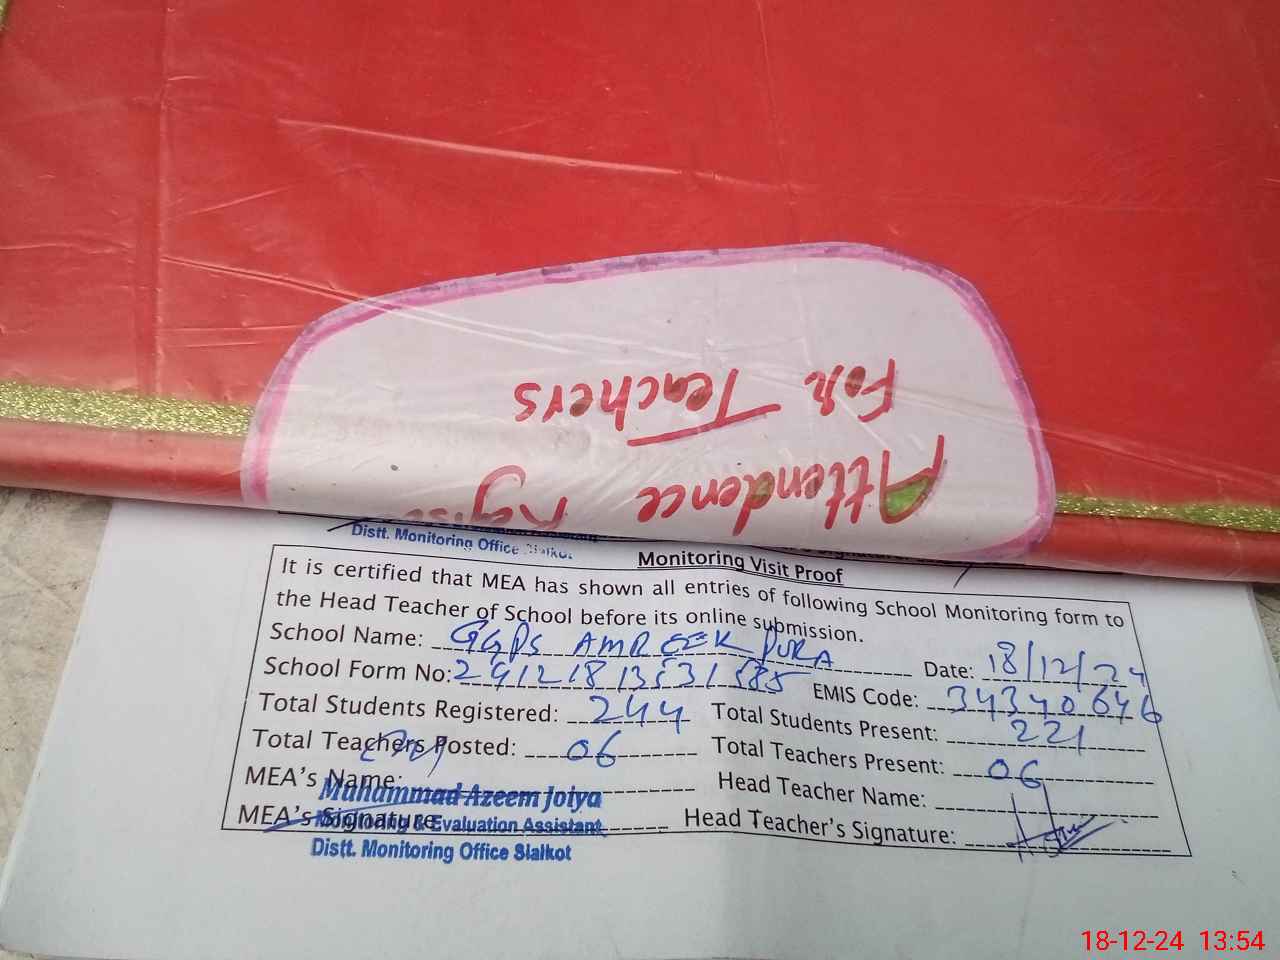 Attendence Regis
For Teachers
Distt. Monitoring Office Sialkot
Monitoring Visit Proof
It is certified that MEA has shown all entries of following School Monitoring form to
the Head Teacher of School before its online submission.
School Name: GGPS AMREEK PURA Date: 18/12/24
School Form No: EMIS Code: 34340646
Total Students Registered: 244 Total Students Present: 221
Total Teachers Posted: 06 Total Teachers Present: 06
MEA's Name: Head Teacher Name:
Muhammad Azeem Joiya
MEA's Signature Head Teacher's Signature:
Monitoring & Evaluation Assistant
Distt. Monitoring Office Sialkot
18-12-24 13:54